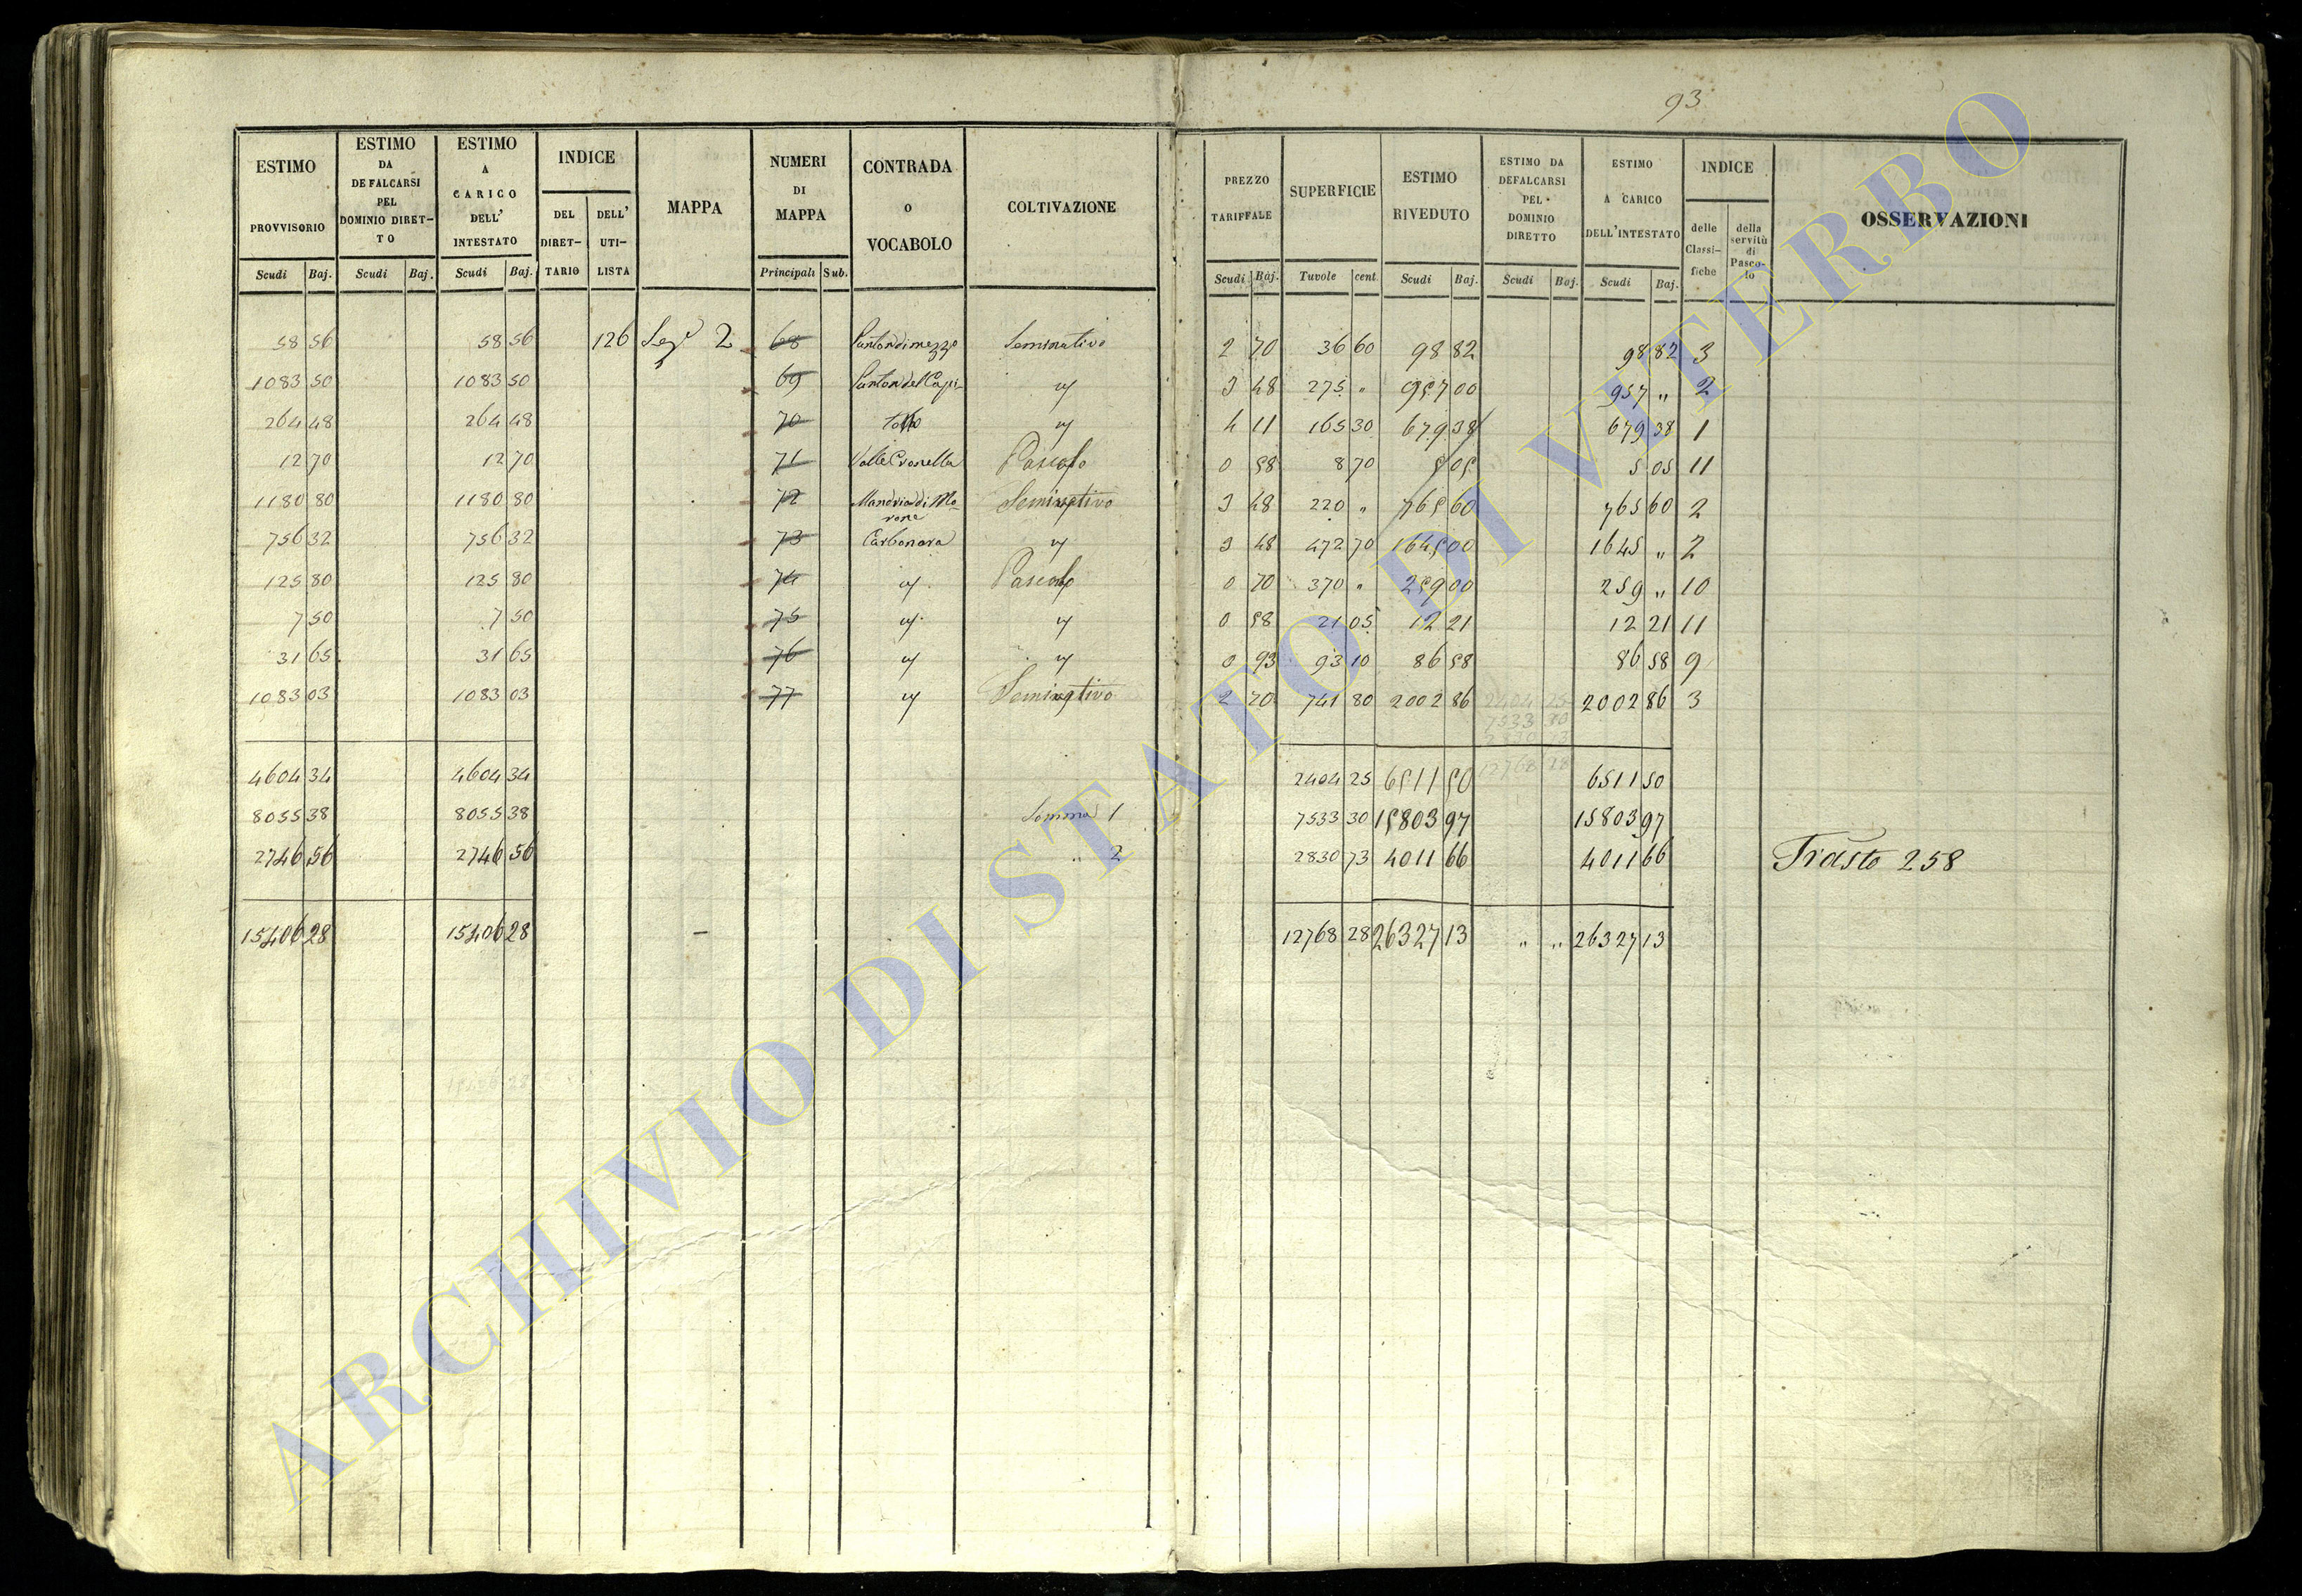 93
ESTIMO PROVVISORIO | ESTIMO DA DEFALCARSI PEL DOMINIO DIRETTO | ESTIMO A CARICO DELL' INTESTATO | INDICE | MAPPA | NUMERI DI MAPPA | CONTRADA O VOCABOLO | COLTIVAZIONE | PREZZO TARIFFALE | SUPERFICIE | ESTIMO RIVEDUTO | ESTIMO DA DEFALCARSI PEL DOMINIO DIRETTO | ESTIMO A CARICO DELL'INTESTATO | INDICE | OSSERVAZIONI
DEL DIRETTARIO | DELL' UTILISTA | delle Classifiche | della servitù di Pascolo
Scudi | Baj. | Scudi | Baj. | Scudi | Baj. | Principali | Sub. | Scudi | Baj. | Tavole | cent. | Scudi | Baj. | Scudi | Baj. | Scudi | Baj.
58 56 | 58 56 | 126 | Sez.e 2 | 68 | Puntondimezzo | Seminativo | 2 70 | 36 60 | 98 82 | 98 82 | 3
1083 50 | 1083 50 | 69 | " | 3 48 | 275 " | 957 00 | 957 " | 2
264 48 | 264 48 | 70 | " | 4 11 | 165 30 | 679 38 | 679 38 | 1
12 70 | 12 70 | 71 | Pascolo | 0 58 | 8 70 | 5 05 | 5 05 | 11
1180 80 | 1180 80 | 72 | Mandria di Mo- | Seminativo | 3 48 | 220 " | 765 60 | 765 60 | 2
rone
756 32 | 756 32 | 73 | Carbonara | " | 3 48 | 472 70 | 1645 00 | 1645 " | 2
125 80 | 125 80 | 74 | " | Pascolo | 0 70 | 370 " | 259 00 | 259 " | 10
7 50 | 7 50 | 75 | " | " | 0 58 | 21 05 | 12 21 | 12 21 | 11
31 65 | 31 65 | 76 | " | " | 0 93 | 93 10 | 86 58 | 86 58 | 9
1083 03 | 1083 03 | 77 | " | Seminativo | 2 70 | 741 80 | 2002 86 | 2404 25 | 2002 86 | 3
7533 30
4604 34 | 4604 34 | 2404 25 | 6511 50 | 12768 28 | 6511 50
8055 38 | 8055 38 | Somma 1 | 7533 30 | 15803 97 | 15803 97
2746 56 | 2746 56 | " 2 | 2830 73 | 4011 66 | 4011 66 | Trasto 258
15406 28 | 15406 28 | 12768 28 | 26327 13 | " " | 26327 13
ARCHIVIO DI STATO DI VITERBO